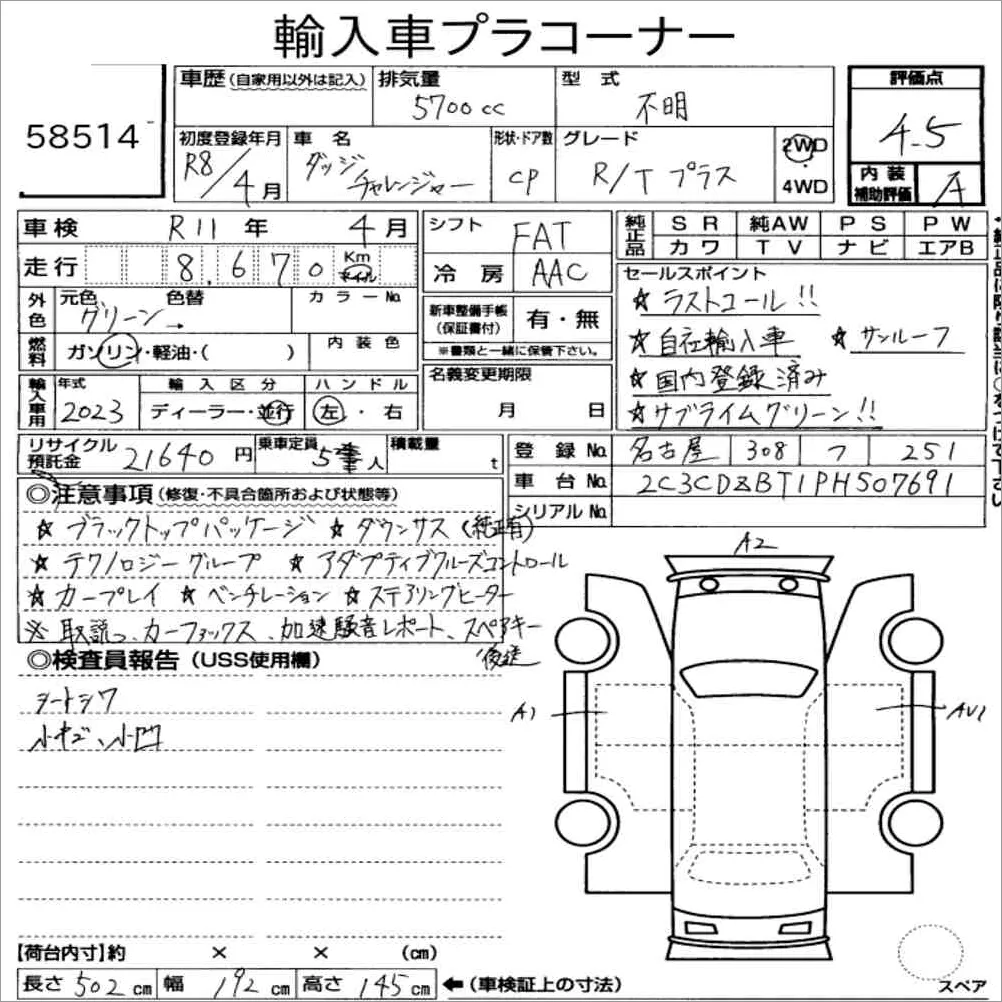 輸入車プラコーナー
58514
車歴(自家用以外は記入) 排気量 5700cc 型式 不明 評価点 4.5
初度登録年月 R8/4月 車名 ダッジ チャレンジャー 形状・ドア数 CP グレード R/T プラス 2WD 4WD
内装補助評価 A
車検 R11年 4月 シフト FAT 純正品 SR 純AW PS PW
カワ TV ナビ エアB
走行 8,670 Km マイル 冷房 AAC
セールスポイント
外色 元色 グリーン 色替 → カラーNo.
☆ラストコール!!
新車整備手帳(保証書付) 有・無
※書類と一緒に保管下さい。
☆自社輸入車 ☆サンルーフ
燃料 ガソリン・軽油・( ) 内装色
☆国内登録済み
輸入車用 年式 2023 輸入区分 ディーラー・並行 ハンドル 左・右
名義変更期限 月 日
☆サブライムグリーン!!
リサイクル預託金 21640円 乗車定員 5人 積載量 t
登録No. 名古屋 308 フ 251
車台No. 2C3CDZBT1PH507691
シリアルNo.
◎注意事項(修復・不具合箇所および状態等)
☆ブラックトップパッケージ ☆ダウンサス(純正有)
☆テクノロジーグループ ☆アダプティブクルーズコントロール
☆カープレイ ☆ベンチレーション ☆ステアリングヒーター
※取説、カーファックス、加速騒音レポート、スペアキー
後送
◎検査員報告(USS使用欄)
シートシワ
小キズ、小凹
A2
A1
AU1
【荷台内寸】約 × × (cm)
長さ 502cm 幅 192cm 高さ 145cm ←(車検証上の寸法)
スペア